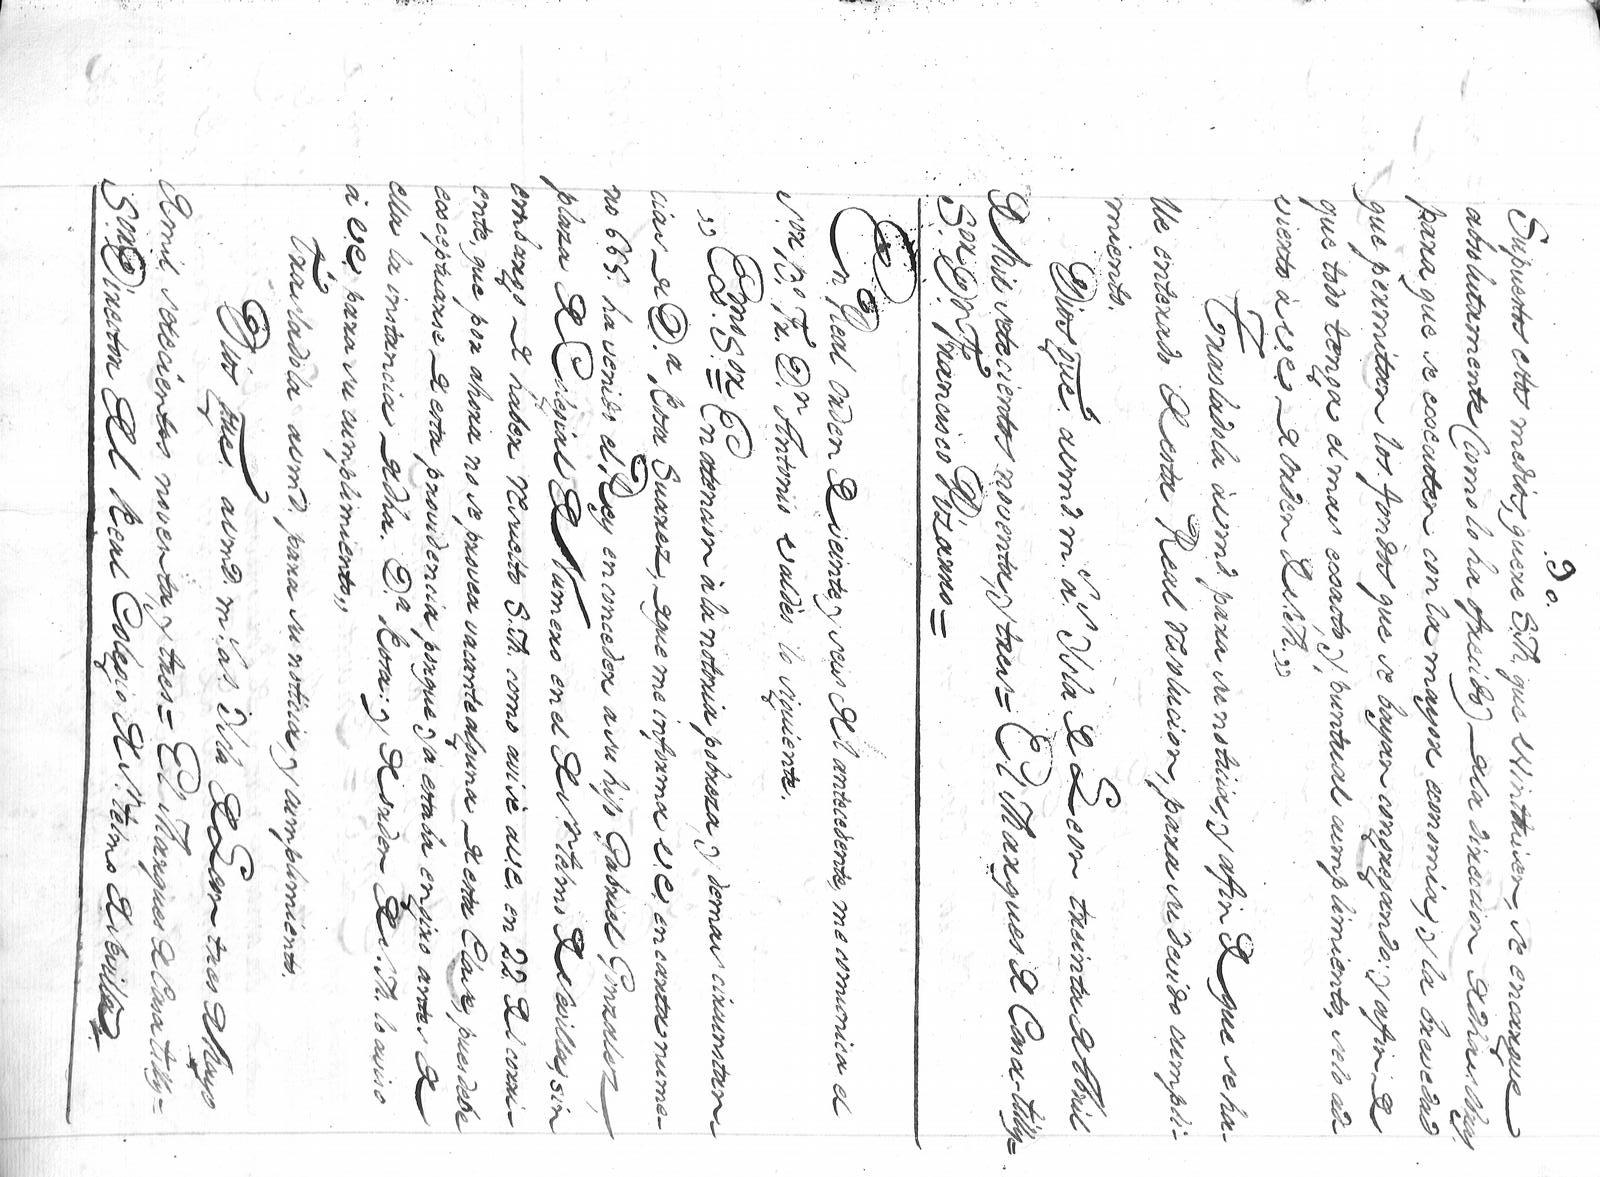 30.
Supuesto este medio, quiere S.M. que Winthuisen, se encargue
absolutamente (como lo ha ofrecido) de la direccion de dhas. obras
para que se executen con la mayor economia, y la brevedad
que permitan los fondos que se bayan congregando: y afin de
que todo tenga el mas exacto, y puntual cumplimiento, selo ad
vierto à V.E. de orden de S.M.,,
Trasladola aumd. para su noticia, y afin de que se ha-
lle enterado de esta Real resolucion, para su devido cumpli-
miento.
Dios gue. aumd. m. a.s Ysla de Leon treinta de Abril
de Mil setecientos noventa, y tres= El Marques de Casa-tilly=
S.or D.n Fran.co Pizarro=
En Real orden de veinte, y seis del antecedente, me comunica el
S.or B.o Fr. D.n Antonio valdès lo siguiente.
,, Exmo. S.or = En atencion à la notoria pobreza, y demas circunstan
cias de D.a Rosa Suarez, que me informa V.E. en carta nume-
ro 665. ha venido el Rey en conceder a su hijo Gabriel Gonzalez,
plaza de Colegial de Numero en el de S.n telmo de Sevilla, sin
embargo de haber resuelto S.M. como avisè a V.E. en 22 del corri-
ente, que por ahora no se provea vacante alguna de esta Clase, pues debe
exceptuarse de esta providencia porque ya estaba en giro antes de
ella la instancia de dha. D.a Rosa: y de orden de S.M. lo aviso
à V.E. para su cumplimiento,,
Trasladola aumd. para su noticia, y cumplimiento.
Dios gue. aumd. m.s a.s Ysla de Leon tres de Mayo
de mil setecientos noventa, y tres= El Marques de Casa tilly=
S.or Director del Real Colegio de S.n telmo de Sevilla